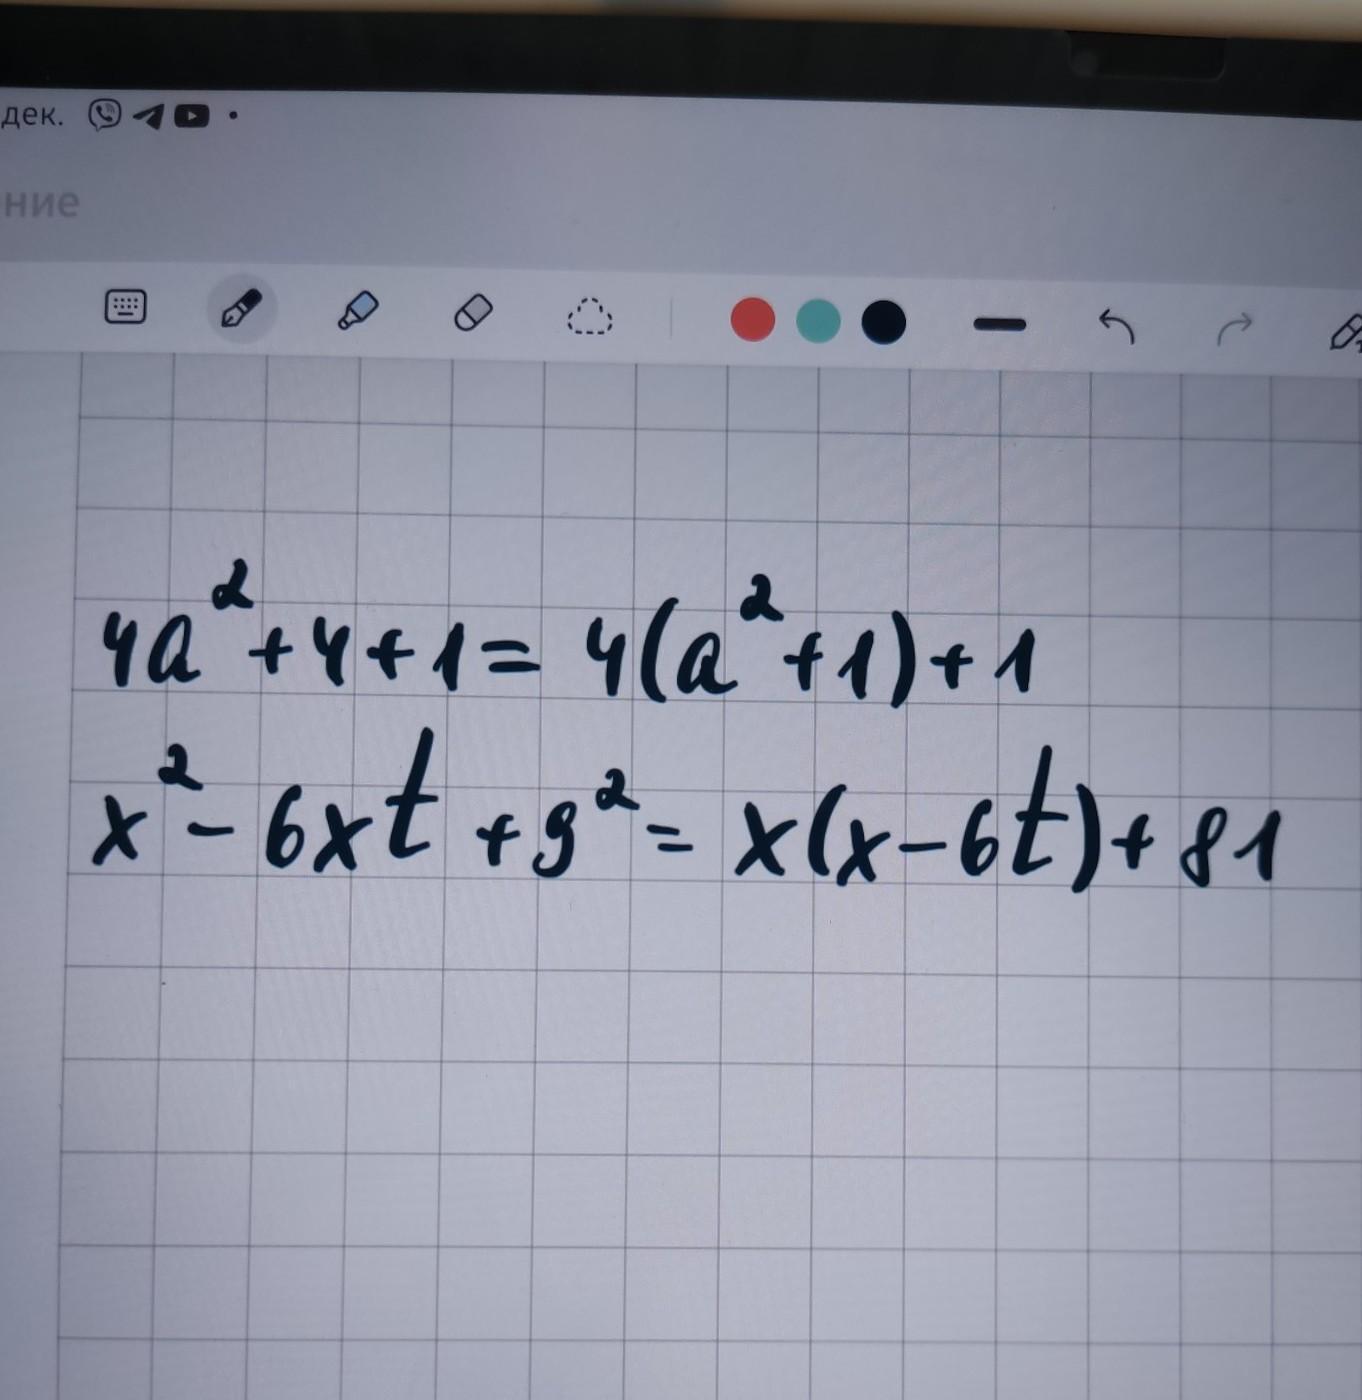 дек.
ние
4a²+4+1= 4(a²+1)+1
x²- 6xt +9²= x(x-6t)+81